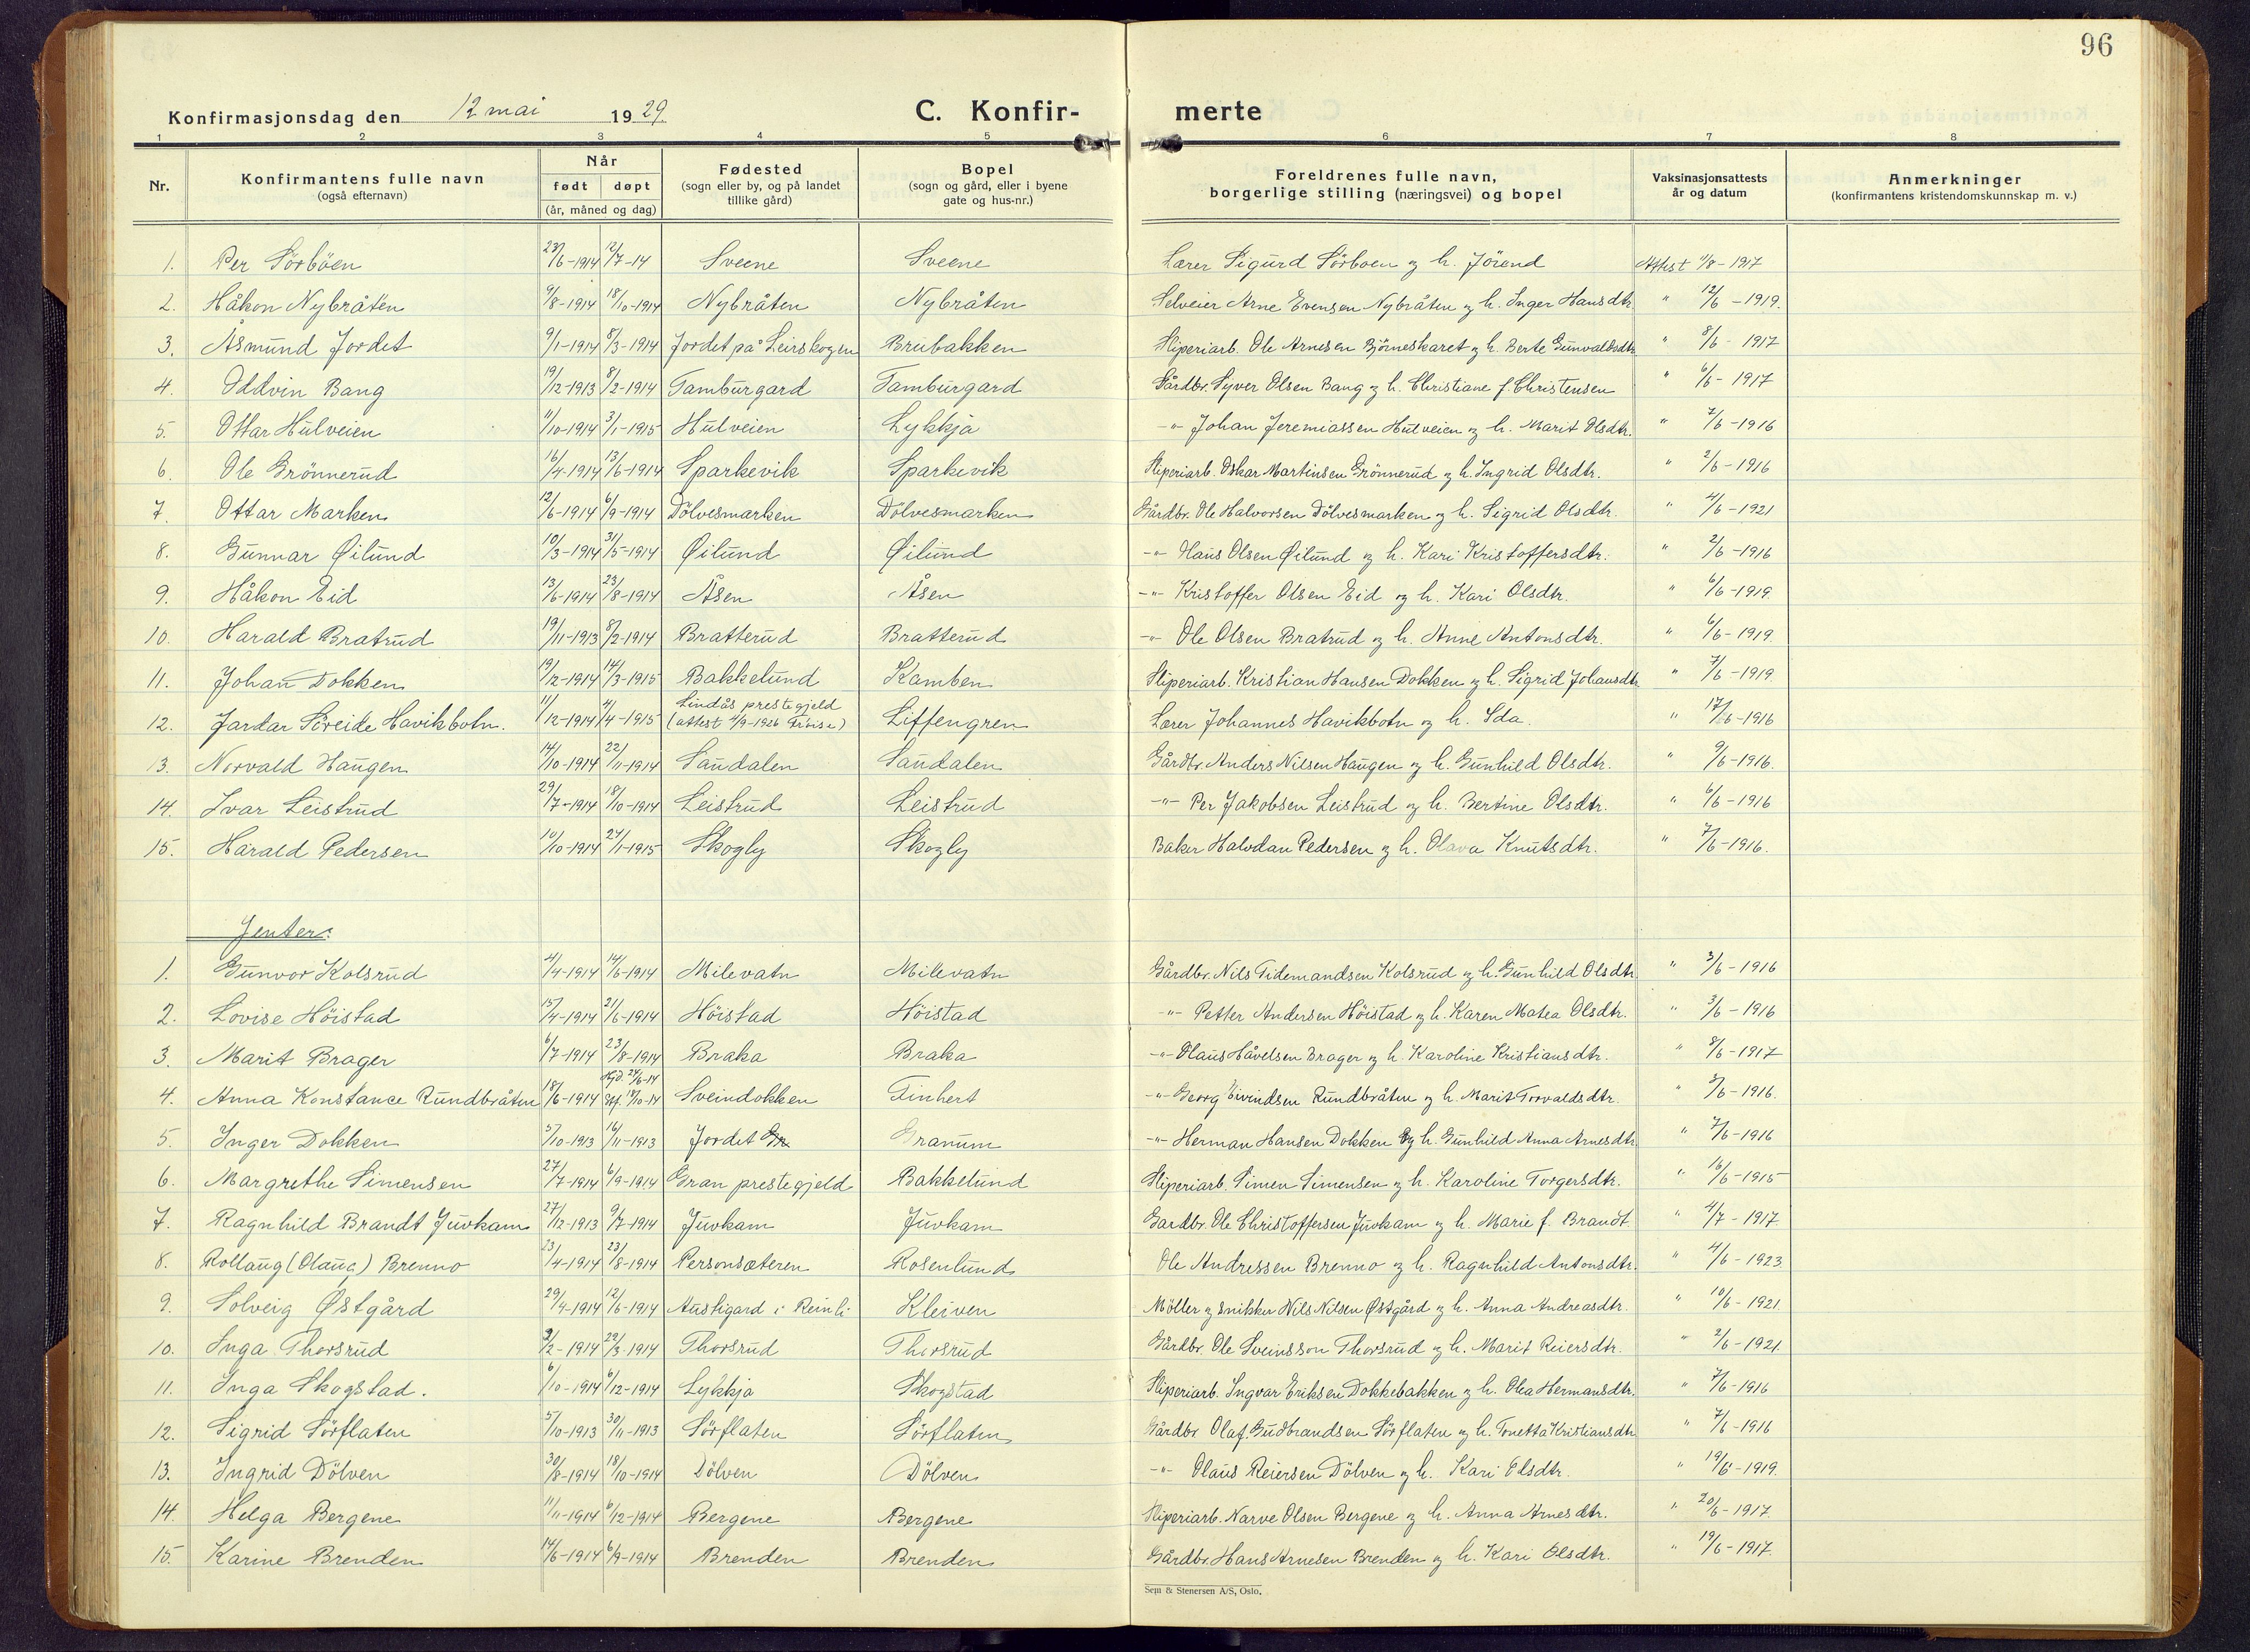 96
Konfirmasjonsdag den 12 mai 1929.
C. Konfir-
merte
1 2 3 4 5 6 7 8
Nr.
Konfirmantens fulle navn
(også efternavn)
Når
født døpt
(år, måned og dag)
Fødested
(sogn eller by, og på landet
tillike gård)
Bopel
(sogn og gård, eller i byene
gate og hus-nr.)
Foreldrenes fulle navn,
borgerlige stilling (næringsvei) og bopel
Vaksinasjonsattests
år og datum
Anmerkninger
(konfirmantens kristendomskunnskap m. v.)
1. Per Sörböen 23/6-1914 12/7-14 Sveene Sveene Lærer Sigurd Sörboen og h. Jörand Attest 11/8-1917
2. Håkon Nybråten 9/8-1914 18/10-1914 Nybråten Nybråten Selveier Arne Evensen Nybråten og h. Inger Hansdtr. " 12/6-1919.
3. Åsmund Jordet 9/1-1914 8/3-1914 Jordet på Leirskogen Brubakken Sliperiarb. Ole Arnesen Björneskaret og h. Berte Gunvaldsdtr " 8/6-1917
4. Oddvin Bang 19/12-1913 8/2-1914 Tamburgard Tamburgard Gårdbr. Syver Olsen Bang og h. Christiane f. Christensen " 6/6-1917
5. Ottar Hulveien 11/10-1914 3/1-1915 Hulveien Lykkja -"- Johan Jeremiassen Hulveien og h. Marit Olsdtr. " 7/6-1916
6. Ole Grönnerud 16/4-1914 13/6-1914 Sparkevik Sparkevik Sliperiarb. Oskar Martinsen Grönnerud og h. Ingrid Olsdtr. " 2/6-1916
7. Ottar Marken 12/6-1914 6/9-1914 Dölvesmarken Dölvesmarken Gårdbr. Ole Halvorsen Dölvesmarken og h. Sigrid Olsdtr. " 4/6-1921
8. Gunnar Øilund 10/3-1914 31/5-1914 Øilund Øilund -"- Hans Olsen Øilund og h. Kari Kristoffersdtr. " 2/6-1916
9. Håkon Eid 13/6-1914 23/8-1914 Åsen Åsen -"- Kristoffer Olsen Eid og h. Kari Olsdtr. " 6/6-1919.
10. Harald Bratrud 19/11-1913 8/2-1914 Bratterud Bratterud -"- Ole Olsen Bratrud og h. Anne Antonsdtr. " 6/6-1919.
11. Johan Dokken 19/12-1914 14/3-1915 Bakkelund Kamben Sliperiarb. Kristian Hansen Dokken og h. Sigrid Johansdtr " 7/6-1919
Lindås prestegjeld
12. Jardar Söreide Havikbotn. 11/12-1914 4/4-1915 (attest 4/9-1926 ) Liffengren Lærer Johannes Havikbotn og h. Ida. " 17/6-1916
13. Norvald Haugen 14/10-1914 22/11-1914 Saudalen Saudalen Gårdbr. Anders Nilsen Haugen og h. Gunhild Olsdtr. " 9/6-1916.
14. Ivar Leistrud 29/7-1914 18/10-1914 Leistrud Leistrud -"- Per Jakobsen Leistrud og h. Bertine Olsdtr. " 6/6-1916
15. Harald Pedersen 10/10-1914 24/1-1915 Skogly Skogly Baker Halvdan Pedersen og h. Olava Knutsdtr. " 7/6-1916.
Jenter:
1. Gunvor Kolsrud 4/4-1914 14/6-1914 Milevatn Milevatn Gårdbr. Nils Tidemandsen Kolsrud og h. Gunhild Olsdtr. " 3/6-1916
2. Lovise Höistad 15/4-1914 21/6-1914 Höistad Höistad -"- Petter Andersen Höistad og h. Karen Matea Olsdtr. " 3/6-1916
3. Marit Brager 6/7-1914 23/8-1914 Braka Braka -"- Olaus Håvelsen Brager og h. Karoline Kristiansdtr. " 8/6-1917
Hjd. 24/6-14
4. Anna Konstance Rundbråten 18/6-1914 Stf. 18/10-14 Sveindokken Tinhert -"- Georg Eivindsen Rundbråten og h. Marit Torvaldsdtr. " 5/6-1916.
5. Inger Dokken 5/10-1913 16/11-1913 Jordet Granum -"- Herman Hansen Dokken og h. Gunhild Anna Arnesdtr " 7/6-1916
6. Margrethe Simensen 27/7-1914 6/9-1914 Gran prestegjeld Bakkelund Sliperiarb. Simen Simensen og h. Karoline Torgersdtr. " 16/6-1915
7. Ragnhild Brandt Juvkam 27/12-1913 9/7-1914 Juvkam Juvkam Gardbr. Ole Christoffersen Juvkam og h. Marie f. Brandt. " 4/7-1917
8. Rollaug (Olaug) Brenno 23/4-1914 23/8-1914 Personsæteren Rosenlund Ole Andressen Brenno og h. Ragnhild Antonsdtr. " 4/6-1923
9. Solveig Østgård 29/4-1914 12/6-1914 Austigard i Reinli Kleiven Möller og snikker Nils Nilsen Østgård og h. Anna Andreasdtr. " 10/6-1921.
10. Inga Thorsrud 3/2-1914 29/3-1914 Thorsrud Thorsrud Gårdbr. Ole Sveinsson Thorsrud og h. Marit Reiersdtr. " 2/6-1921.
11. Inga Skogstad. 6/10-1914 6/12-1914 Lykkja Skogstad Sliperiarb. Ingvar Eriksen Dokkebakken og h. Olea Hermansdtr. " 7/6-1916
12. Sigrid Sörflaten 5/10-1913 30/11-1913 Sörflaten Sörflaten Gårdbr Olaf Gudbrandsen Sörflaten og h. Tonetta Kristiansdtr " 7/6-1916
13. Ingrid Dölven 30/8-1914 18/10-1914 Dölven Dölven -"- Olaus Reiersen Dölven og h. Kari Olsdtr. " 19/6-1919.
14. Helga Bergene 11/11-1914 6/12-1914 Bergene Bergene Sliperiarb. Narve Olsen Bergene og h. Anna Arnesdtr. " 20/6-1917.
15. Karine Brenden 14/6-1914 6/9-1914 Brenden Brenden Gårdbr. Hans Arnesen Brenden og h. Kari Olsdtr. " 19/6-1917.
Sem & Stenersen A/S, Oslo.